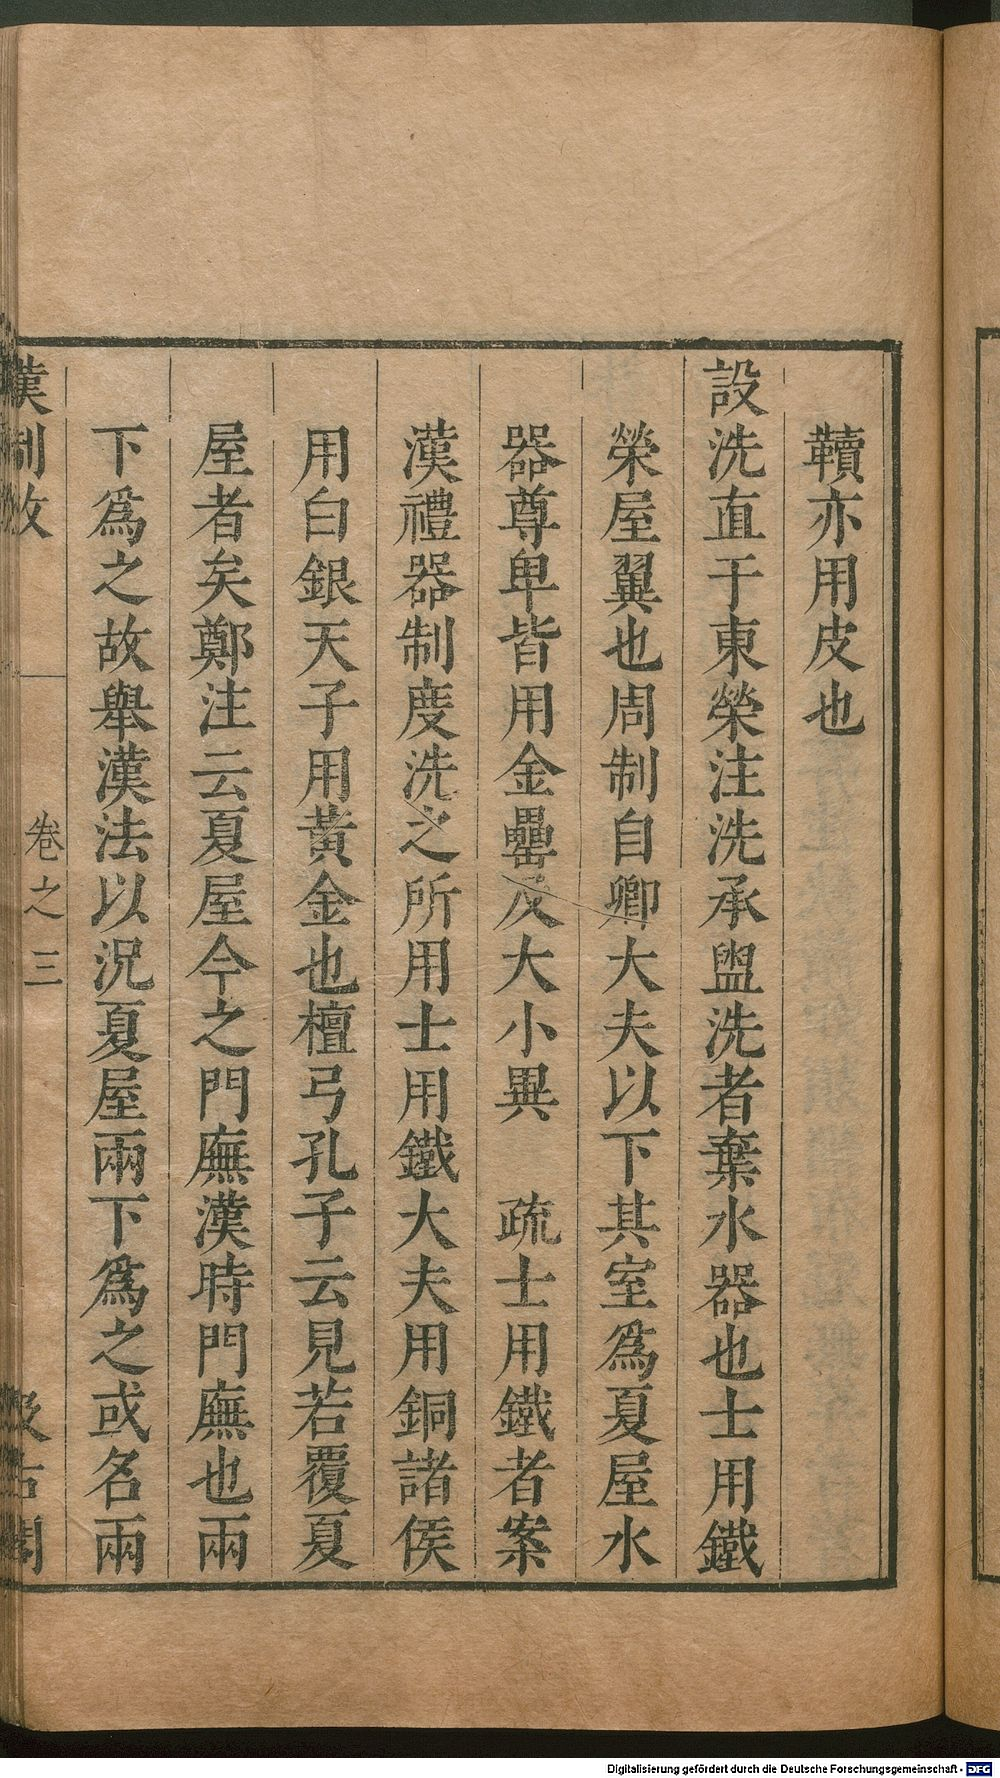 韇亦用皮也
設洗直于東榮注洗承盥洗者棄水器也士用鐵
榮屋翼也周制自卿大夫以下其室爲夏屋水
器尊卑皆用金罍及大小異　疏士用鐵者案
漢禮器制度洗之所用士用鐵大夫用銅諸侯
用白銀天子用黃金也檀弓孔子云見若覆夏
屋者矣鄭注云夏屋今之門廡漢時門廡也兩
下爲之故舉漢法以況夏屋兩下爲之或名兩
漢制攷　卷之三　汲古閣
Digitalisierung gefördert durch die Deutsche Forschungsgemeinschaft - DFG